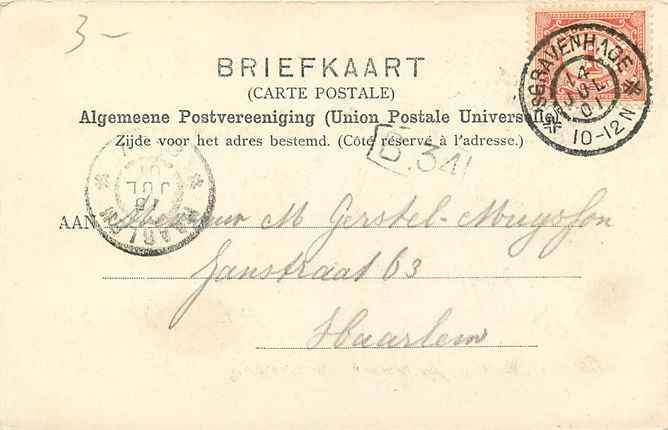 3-
BRIEFKAART
(CARTE POSTALE)
Algemeene Postvereeniging (Union Postale Universelle)
Zijde voor het adres bestemd. (Côté réservé à l'adresse.)
'SGRAVENHAGE
14
JUL
01
10-12 N
B.341
HAARLEM
JUL
01
AAN
M Gerstel-Muysson
Janstraat 63
Haarlem